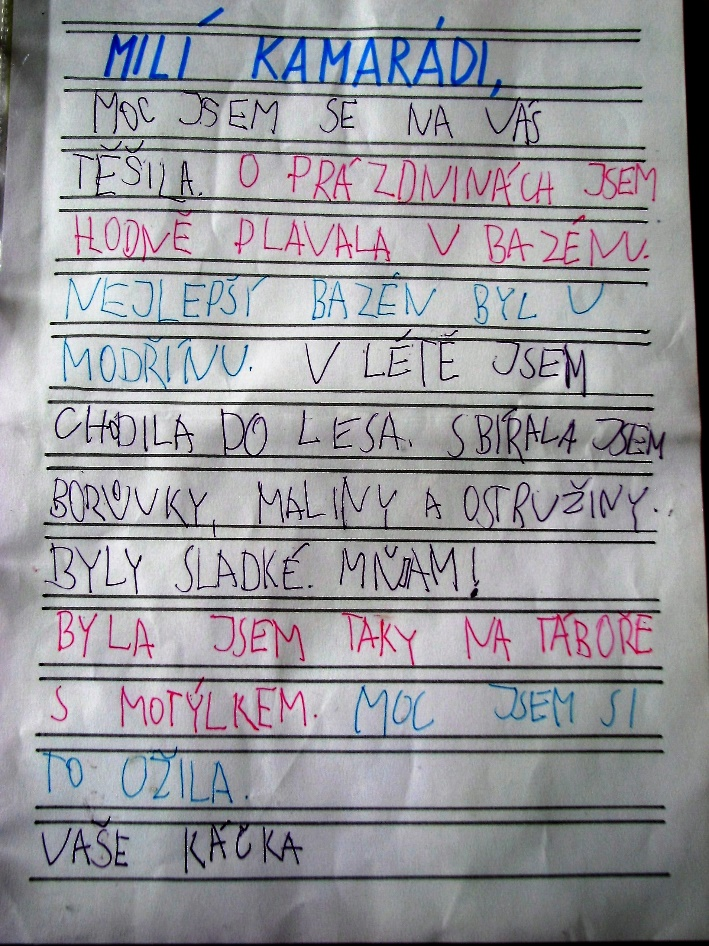 MILÍ KAMARÁDI,
MOC JSEM SE NA VÁS
TĚŠILA. O PRÁZDNINÁCH JSEM
HODNĚ PLAVALA V BAZÉNU.
NEJLEPŠÍ BAZÉN BYL V
MODŘÍNU. V LÉTĚ JSEM
CHODILA DO LESA. SBÍRALA JSEM
BORŮVKY, MALINY A OSTRUŽINY.
BYLY SLADKÉ. MŇAM!
BYLA JSEM TAKY NA TÁBOŘE
S MOTÝLKEM. MOC JSEM SI
TO UŽILA.
VAŠE KÁČKA